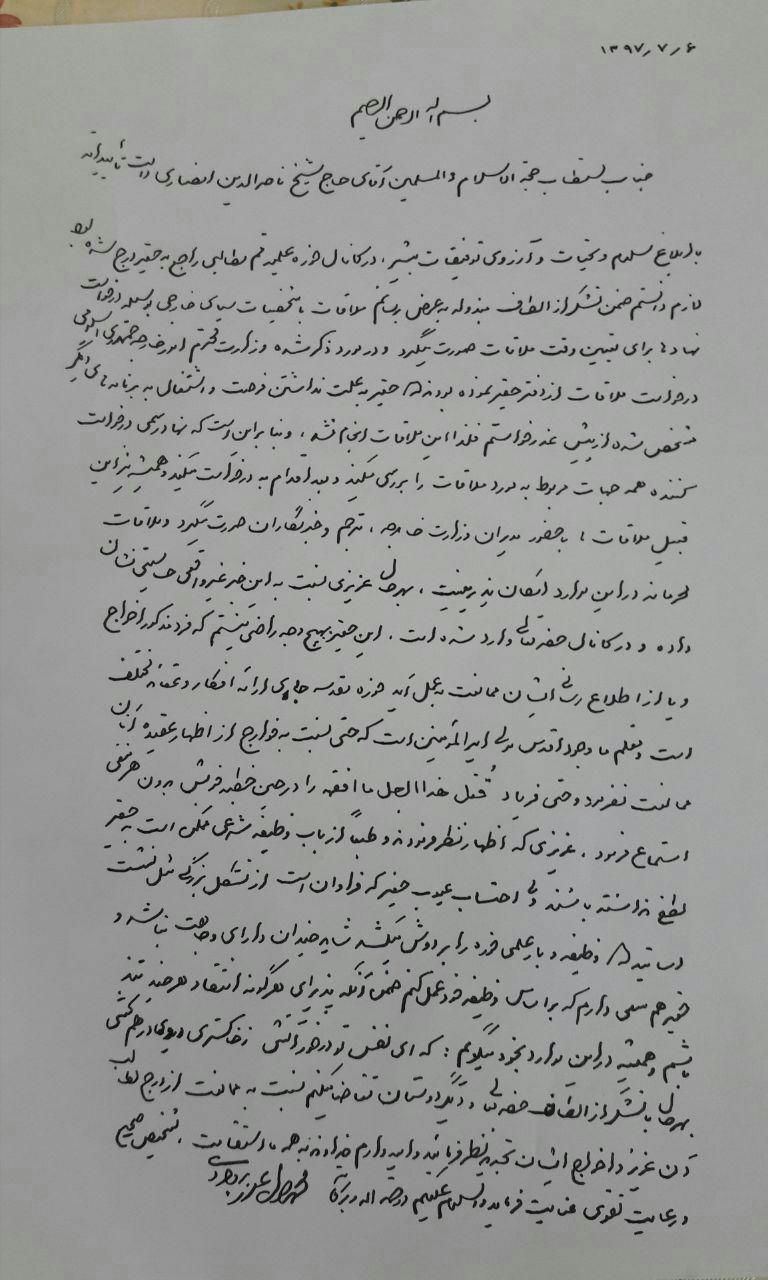 ۱۳۹۷٫۷٫۶
بسم الله الرحمن الرحیم
جناب مستطاب حجة الاسلام و المسلمین آقای حاج شیخ ناصرالدین انصاری دامت تأییداته
با ابلاغ سلام و تحیات و آرزوی توفیقات بیشتر، در کانال حوزه علمیه قم مطالبی راجع به حقیر درج شده بود
لازم دانستم ضمن تشکر از الطاف مبذوله به عرض برسانم ملاقات با شخصیات سیاسی خارجی بوسیله درخواست
نهادها برای تعیین وقت ملاقات صورت میگیرد و در مورد ذکر شده وزارت محترم امور خارجه جمهوری اسلامی
درخواست ملاقات از دفتر حقیر نموده بودند که حقیر به علت نداشتن فرصت و اشتغال به برنامه های دیگر
مشخص شده از پیش عذر خواستم فلذا این ملاقات انجام نشد، و بنا بر این است که نهاد رسمی درخواست
کننده همه جهات مربوط به مورد ملاقات را بررسی میکنند و بعد اقدام به درخواست میکنند و همیشه نیز این
قبیل ملاقات ها با حضور مدیران وزارت خارجه، مترجم و خبرنگاران صورت میگیرد و ملاقات
محرمانه در این موارد امکان پذیر نیست، بهرحال عزیزی نسبت به این خبر غیر واقعی حساسیتی نشان
داده و در کانال حضرتعالی وارد شده است. این حقیر بهیچ وجه راضی نیستم که فرد مذکور اخراج
و یا از اطلاع رسانی ایشان ممانعت به عمل آید حوزه مقدسه جای ارائه افکار و عقاید مختلف
است و معلم ما وجود اقدس مولی امیرالمؤمنین است که حتی نسبت به خوارج از اظهار عقیده آنان
ممانعت نفرمود و حتی فریاد قتل هذا الرجل ما افقهه را در حین خطبه خویش بدون هر نفی
استماع فرمود. عزیزی که اظهار نظر فرمودند و طبعاً از باب وظیفه شرعی ممکن است به حقیر
لطفی نداشته باشند ولی احتساب عیوب حقیر که فراوان است از تشکل بزرگی مثل نشست
اساتید که وظیفه و بار علمی حوزه را بر دوش میکشد شاید چندان دارای وجاهت نباشد و
حقیر هم سعی دارم که بر اساس وظیفه خود عمل کنم ضمن آنکه پذیرای هرگونه انتقاد هر چند تند
باشم و همیشه در این موارد بخود میگویم: که ای نفس تو در خور آتشی ز خاکستری روی درهم کشی
بهرحال با تشکر از الطاف حضرتعالی و دیگر دوستان تقاضا میکنم نسبت به ممانعت از درج مطالب
آن عزیز و اخراج ایشان تجدید نظر فرمائید و امیدوارم خداوند به همه ما استقامت، تشخیص صحیح
و رعایت تقوی عنایت فرماید والسلام علیکم و رحمة الله و برکاته